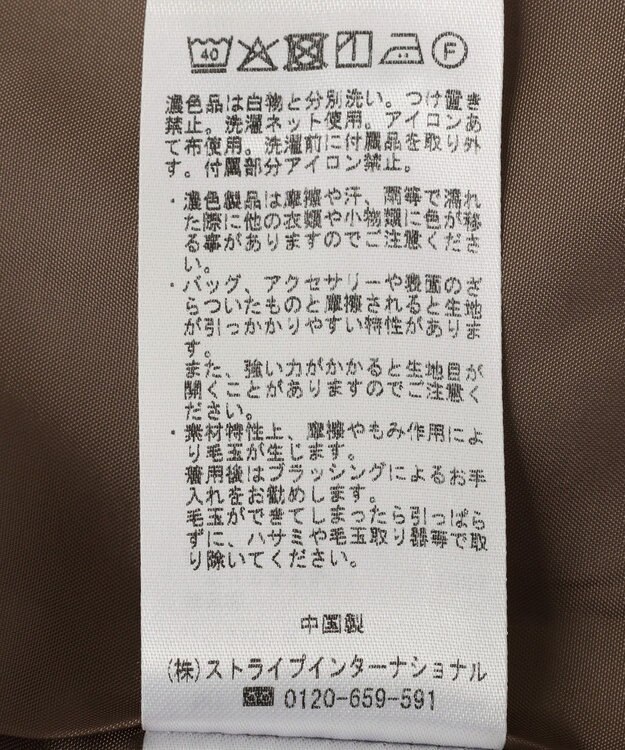 40 F
濃色品は白物と分別洗い。つけ置き
禁止。洗濯ネット使用。アイロンあ
て布使用。洗濯前に付属品を取り外
す。付属部分アイロン禁止。
・濃色製品は摩擦や汗、雨等で濡れ
た際に他の衣類や小物類に色が移
る事がありますのでご注意くださ
い。
・バッグ、アクセサリーや表面のざ
らついたものと摩擦されると生地
が引っかかりやすい特性がありま
す。
また、強い力がかかると生地目が
開くことがありますのでご注意く
ださい。
・素材特性上、摩擦やもみ作用によ
り毛玉が生じます。
着用後はブラッシングによるお手
入れをお勧めします。
毛玉ができてしまったら引っぱら
ずに、ハサミや毛玉取り器等で取
り除いてください。
中国製
(株)ストライプインターナショナル
0120-659-591